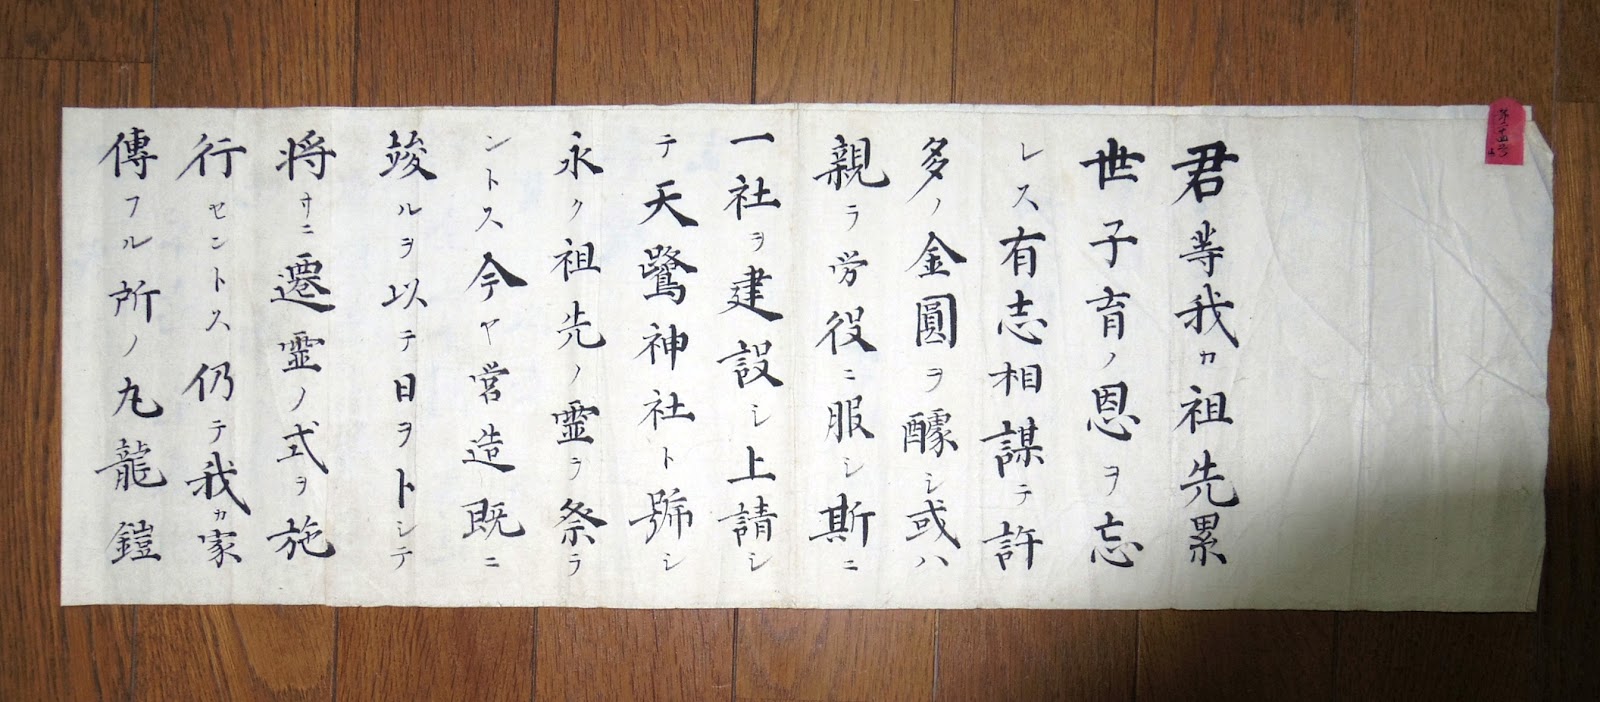 君等我カ祖先累
世子育ノ恩ヲ忘
レス有志相謀テ許
多ノ金圓ヲ醵シ或ハ
親ラ労役ニ服シ斯ニ
一社ヲ建設シ上請シ
テ天鷺神社ト號シ
永ク祖先ノ靈ヲ祭ラ
ントス今ヤ営造既ニ
竣ルヲ以テ日ヲトシテ
将サニ遷霊ノ式ヲ施
行セントス仍テ我カ家
傳フル所ノ九龍鎧